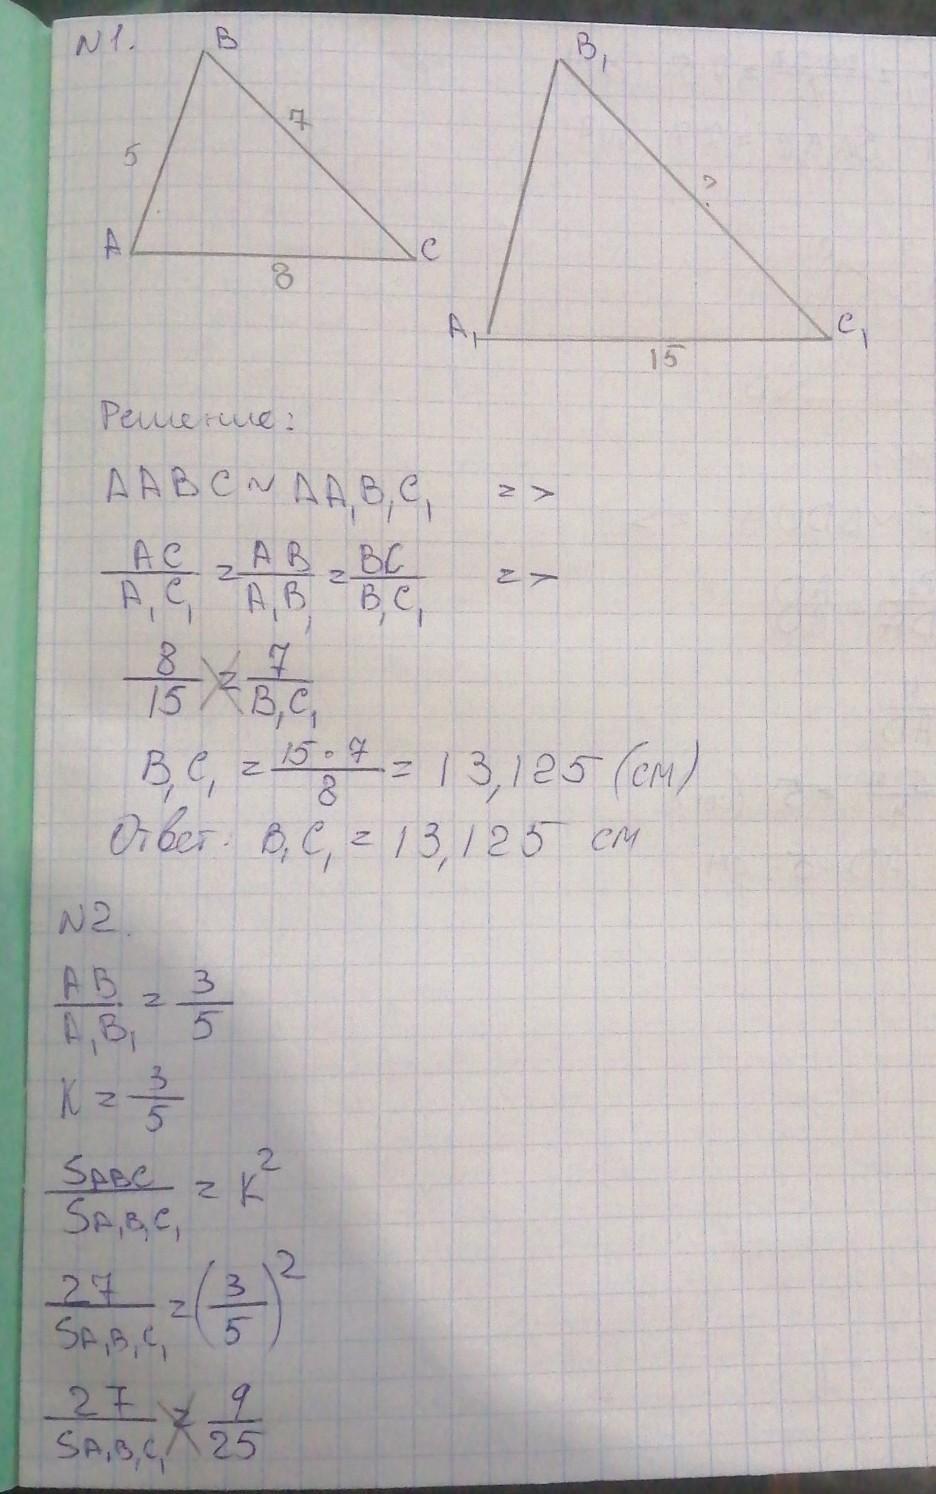 N1.
B
5
7
A
8
C
B₁
?
A₁
15
C₁
Решение:
ΔABC ~ ΔA₁B₁C₁ =>
AC/A₁C₁ = AB/A₁B₁ = BC/B₁C₁ =>
8/15 = 7/B₁C₁
B₁C₁ = 15·7/8 = 13,125 (см)
Ответ. B₁C₁ = 13,125 см
N2.
AB/A₁B₁ = 3/5
K = 3/5
SABC/SA₁B₁C₁ = K²
27/SA₁B₁C₁ = (3/5)²
27/SA₁B₁C₁ = 9/25